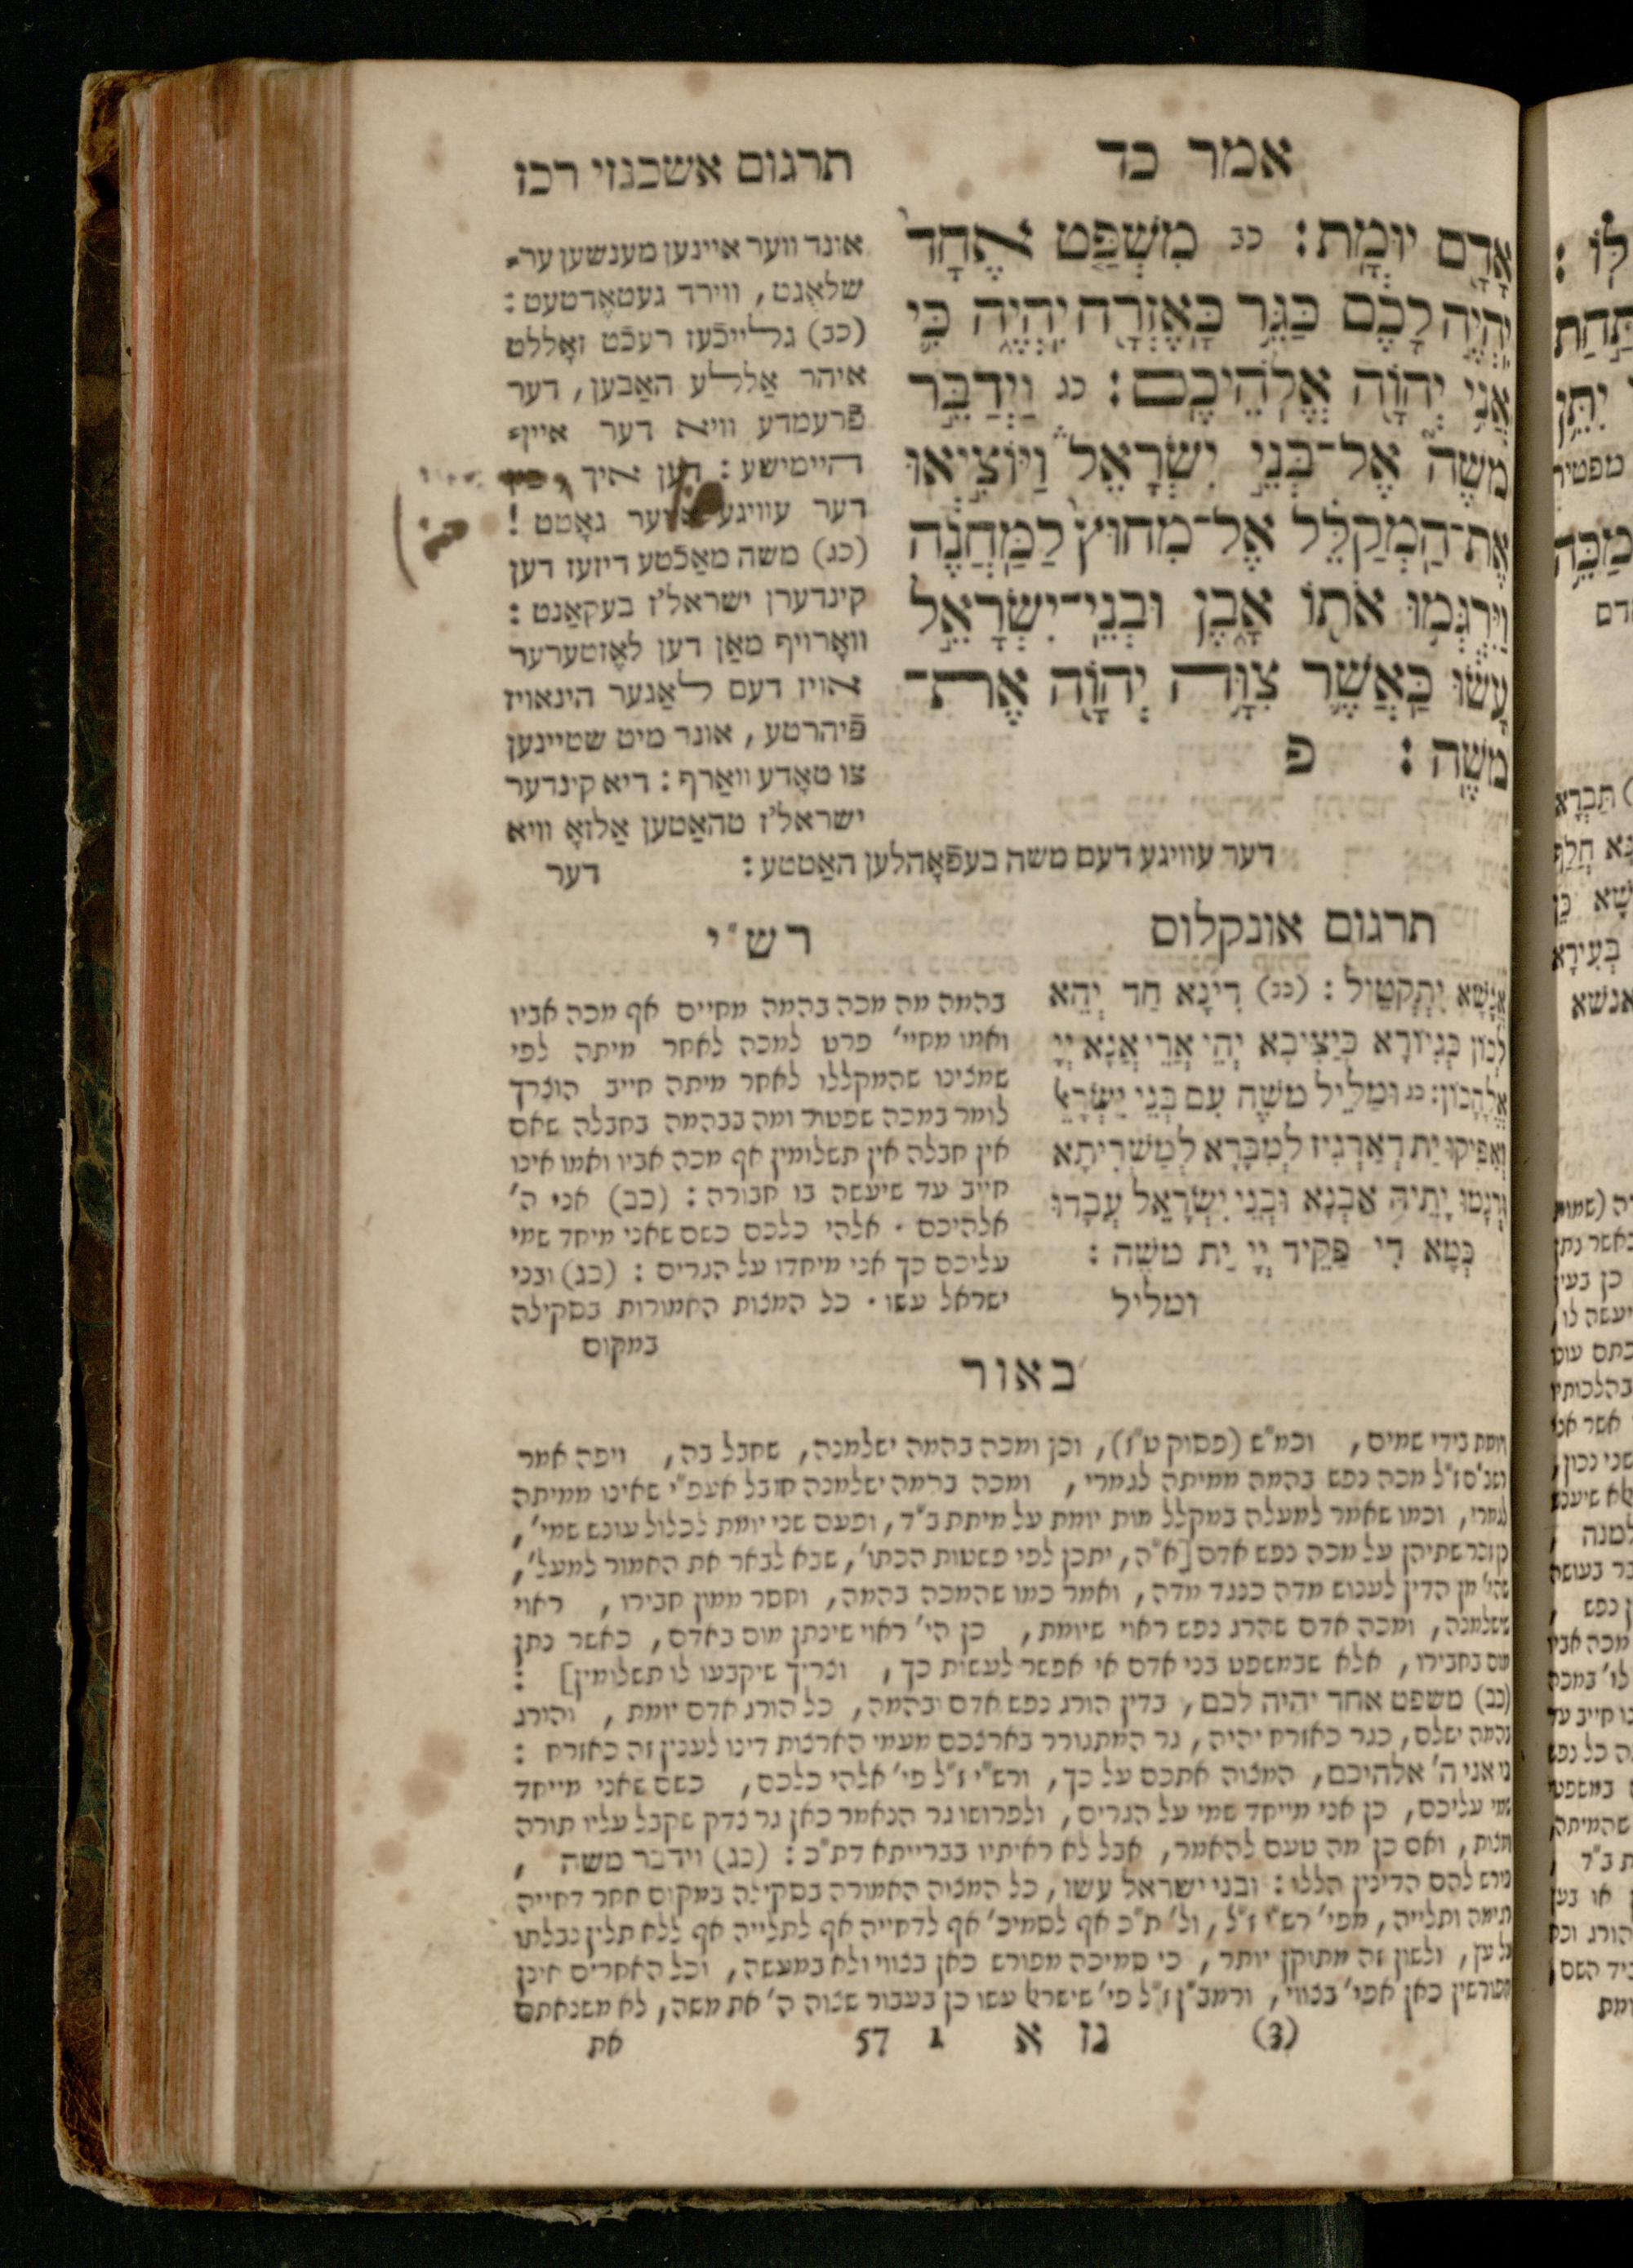 אמר כד
תרגום אשכנזי רכז
אָדָם יוּמָת: כב מִשְׁפַּט אֶחָד
יִהְיֶה לָכֶם כַּגֵּר כָּאֶזְרָח יִהְיֶה כִּי
אֲנִי יְהֹוָה אֱלֹהֵיכֶם: כג וַיְדַבֵּר
מֹשֶׁה אֶל־בְּנֵי יִשְׂרָאֵל וַיּוֹצִיאוּ
אֶת־הַמְקַלֵּל אֶל־מִחוּץ לַמַּחֲנֶה
וַיִּרְגְּמוּ אֹתוֹ אָבֶן וּבְנֵי־יִשְׂרָאֵל
עָשׂוּ כַּאֲשֶׁר צִוָּה יְהֹוָה אֶת־
מֹשֶׁה: פ
אונד ווער איינען מענשען ער־
שלאגט, ווירד געטאֶדטעט:
(כב) גלייכֿעז רעכֿט זאָללט
איהר אַללע האַבען, דער
פֿרעמדע וויא דער איינ־
היימישע: דען איך
דער עוויגע אייער גאָטט!
(כג) משה מאַכֿטע דיזעז דען
קינדערן ישראל'ז בעקאַנט:
וואָרויף מאַן דען לאֶזטערער
אויז דעם לאַגער הינאויז
פֿיהרטע, אונד מיט שטיינען
צו טאָדע וואַרף: דיא קינדער
ישראל'ז טהאַטען אַלזאָ וויא
דער עוויגע דעם משה בעפֿאָהלען האַטטע:
דער
תרגום אונקלוס
אֲנָשָׁא יִתְקְטֵיל: (כב) דִינָא חַד יְהֵא
לְכוֹן כְּגִיוֹרָא כְּיַצִיבָא יְהֵי אֲרֵי אֲנָא יְיָ
אֱלָהֲכוֹן: כג וּמַלֵיל משֶׁה עִם בְּנֵי יִשְׂרָאֵל
וְאַפִּיקוּ יַת דְאַרְגִיז לְמִבָּרָא לְמַשְׁרִיתָא
וּרְגָמוּ יָתֵיהּ אַבְנָא וּבְנֵי יִשְׂרָאֵל עֲבָדוּ
כְּמָא דִי פַּקֵיד יְיָ יַת משֶׁה:
ומליל
רש"י
בהמה מה מכה בהמה מחיים אף מכה אביו
ואמו מחיי' פרט למכה לאחר מיתה לפי
שמצינו שהמקללו לאחר מיתה חייב הוצרך
לומר במכה שפטור ומה בבהמה בחבלה שאם
אין חבלה אין תשלומין אף מכה אביו ואמו אינו
חייב עד שיעשה בו חבורה: (כב) אני ה'
אלהיכם. אלהי כלכם כשם שאני מיחד שמי
עליכם כך אני מיחדו על הגרים: (כג) ובני
ישראל עשו. כל המצות האמורות בסקילה
במקום
באור
יומת בידי שמים, וכמ"ש (פסוק ט"ו), וכן ומכה בהמה ישלמנה, שחבל בה, ויפה אמר
מכה נפש בהמה ממיתה לגמרי, ומכה בהמה ישלמנה חובל אעפ"י שאינו ממיתה
לגמרי, וכמו שאמר למעלה במקלל מות יומת על מיתת ב"ד, ופעם שני יומת לכלול עונש שמי',
שתיהן על מכה נפש אדם [א"ה, יתכן לפי פשטות הכתו', שבא לבאר את האמור למעל',
שהי' מן הדין לענוש מדה כנגד מדה, ואמר כמו שהמכה בהמה, וחסר ממון חבירו, ראוי
שישלמנה, ומכה אדם שהרג נפש ראוי שיומת, כן הי' ראוי שינתן מום באדם, כאשר נתן
מום בחבירו, אלא שבמשפט בני אדם אי אפשר לעשות כך, וצריך שיקבעו לו תשלומין]:
(כב) משפט אחד יהיה לכם, בדין הורג נפש אדם ובהמה, כל הורג אדם יומת, והורג
בהמה ישלם, כגר כאזרח יהיה, גר המתגורר בארצכם מעמי הארצות דינו לענין זה כאזרח:
כי אני ה' אלהיכם, המצוה אתכם על כך, ורש"י ז"ל פי' אלהי כלכם, כשם שאני מייחד
שמי עליכם, כן אני מייחד שמי על הגרים, ולפרושו גר הנאמר כאן גר צדק שקבל עליו תורה
ומצות, ואם כן מה טעם להאמר, אבל לא ראיתיו בברייתא דת"כ: (כג) וידבר משה,
פירש להם הדינין הללו: ובני ישראל עשו, כל המצוה האמורה בסקילה במקום אחר דחייה
רגימה ותלייה, מפי' רש"י ז"ל, ול' ת"כ אף לסמיכ' אף לדחייה אף לתלייה אף ללא תלין נבלתו
על עץ, ולשון זה מתוקן יותר, כי סמיכה מפורש כאן בצווי ולא במעשה, וכל האחרים אינן
מפורשין כאן אפי' בצווי, ורמב"ן ז"ל פי' שישראל עשו כן בעבור שצוה ה' את משה, לא משנאתם
(3) גז א 1 57 את